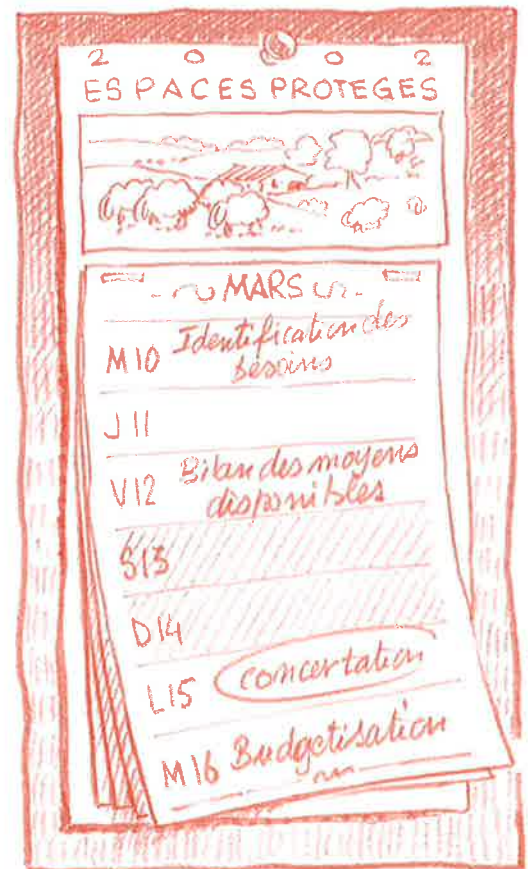 2 0 0 2
ESPACES PROTEGES
MARS
M10 Identification des
besoins
J11
V12 Bilan des moyens
disponibles
S13
D14
L15 concertation
M16 Budgetisation